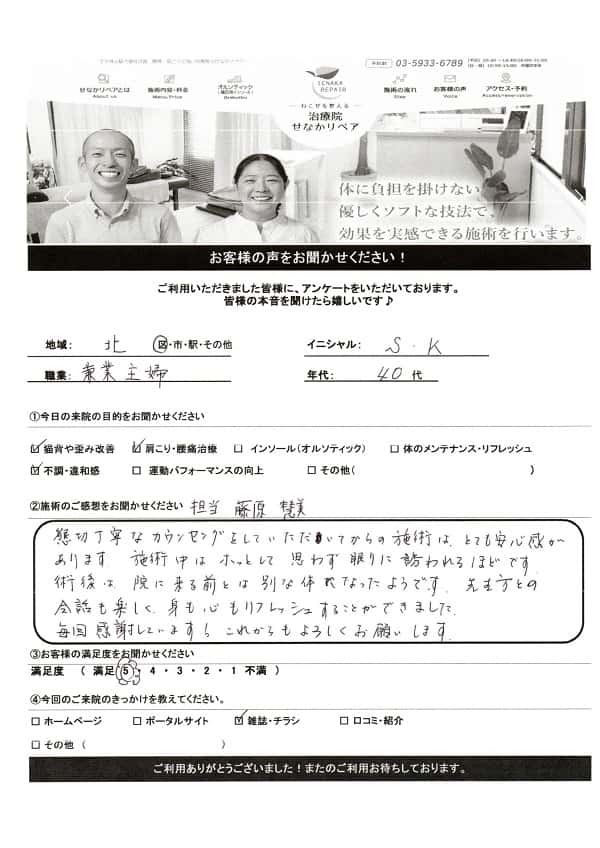 予約制 03-5933-6789
SENAKA REPAIR
せなかリペアとは
About us
施術内容・料金
Menu/Price
オルソティック
施術の流れ
Step
お客様の声
Voice
アクセス・予約
Access/reservation
ねこぜを整える
治療院
せなかリペア
体に負担を掛けない
優しくソフトな技法で、
効果を実感できる施術を行います。
お客様の声をお聞かせください!
ご利用いただきました皆様に、アンケートをいただいております。
皆様の本音を聞けたら嬉しいです♪
地域: 北 区・市・駅・その他 イニシャル: S・K
職業: 兼業主婦 年代: 40代
①今日の来院の目的をお聞かせください
☑ 猫背や歪み改善 ☑ 肩こり・腰痛治療 □ インソール(オルソティック) □ 体のメンテナンス・リフレッシュ
☑ 不調・違和感 □ 運動パフォーマンスの向上 □ その他( )
②施術のご感想をお聞かせください 担当 藤原 慧美
懇切丁寧なカウンセングをしていただいてからの施術は、とても安心感が
あります。施術中はホッとして思わず眠りに誘われるほどです。
術後は、院に来る前とは別な体になったようです。先生方との
会話も楽しく、身も心もリフレッシュすることができました。
毎回感謝しています! これからもよろしくお願いします。
③お客様の満足度をお聞かせください
満足度 ( 満足 5・4・3・2・1 不満 )
④今回のご来院のきっかけを教えてください。
□ ホームページ □ ポータルサイト ☑ 雑誌・チラシ □ 口コミ・紹介
□ その他 ( )
ご利用ありがとうございました!またのご利用お待ちしております。